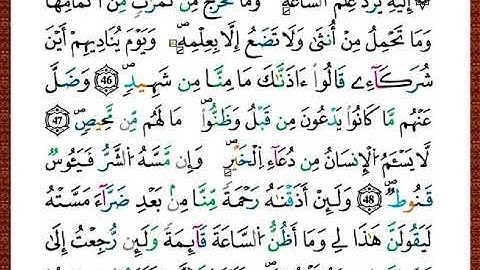 إِلَيْهِ يُرَدُّ عِلْمُ السَّاعَةِ وَمَا تَخْرُجُ مِن ثَمَرَٰتٍ مِّنْ أَكْمَامِهَا
وَمَا تَحْمِلُ مِنْ أُنثَىٰ وَلَا تَضَعُ إِلَّا بِعِلْمِهِۦ وَيَوْمَ يُنَادِيهِمْ أَيْنَ
شُرَكَآءِے قَالُوٓاْ ءَاذَنَّٰكَ مَا مِنَّا مِن شَهِيدٖ 46 وَضَلَّ
عَنْهُم مَّا كَانُواْ يَدْعُونَ مِن قَبْلُ وَظَنُّواْ مَا لَهُم مِّن مَّحِيصٖ 47
لَّا يَسْـَٔمُ اُلْإِنسَٰنُ مِن دُعَآءِ اِلْخَيْرِ وَإِن مَّسَّهُ اُلشَّرُّ فَيَـُٔوسٞ
قَنُوطٞ 48 وَلَئِنْ أَذَقْنَٰهُ رَحْمَةٗ مِّنَّا مِنۢ بَعْدِ ضَرَّآءَ مَسَّتْهُ
لَيَقُولَنَّ هَٰذَا لِے وَمَآ أَظُنُّ اُلسَّاعَةَ قَآئِمَةٗ وَلَئِن رُّجِعْتُ إِلَىٰ